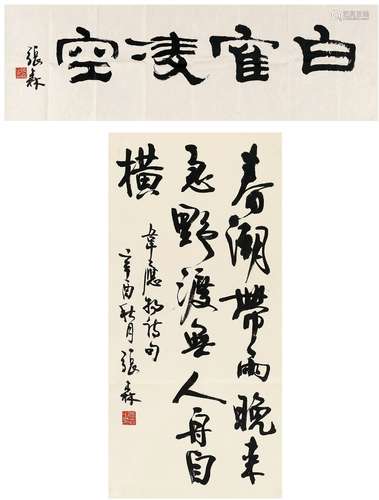 白隺凌空
張森
春潮帶雨晚来
急野渡無人舟自
橫
韋應物詩句
辛酉秋月張森